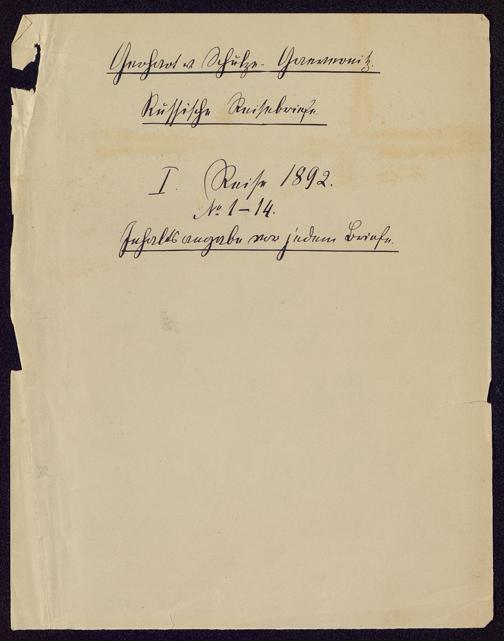 Gerhart v Schulze-Gaevernitz.
Russische Reisebriefe.
I. Reise 1892.
No 1-14.
Inhaltsangabe vor jedem Briefe.